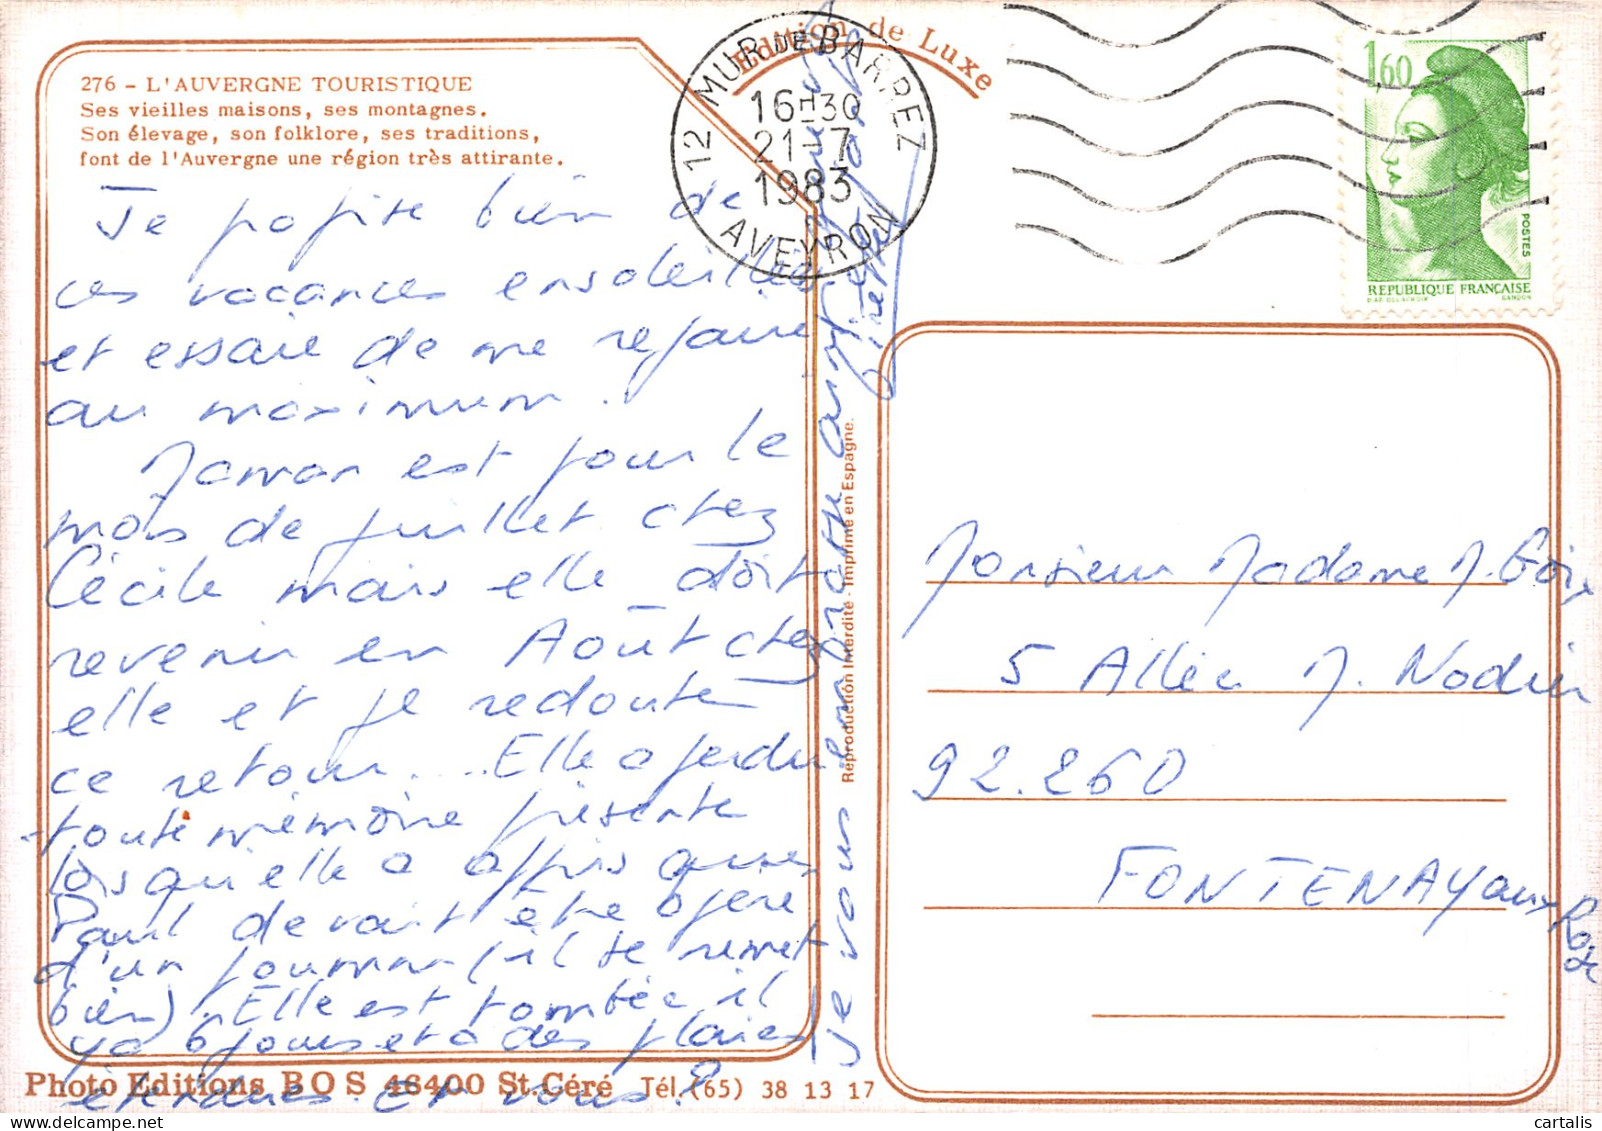 276 - L'AUVERGNE TOURISTIQUE
Ses vieilles maisons, ses montagnes.
Son élevage, son folklore, ses traditions,
font de l'Auvergne une région très attirante.
Edition de Luxe
12 MUR DE BARREZ
16H30
21-7
1983
AVEYRON
1,60
POSTES
REPUBLIQUE FRANÇAISE
D'AP. DELACROIX GANDON
Je profite bien de
ces vacances ensoleillées
et essaie de me refaire
au maximum.
Maman est pour le
mois de juillet chez
Cécile mais elle doit
revenir en Août chez
elle et je redoute
ce retour... Elle a perdu
toute mémoire présente
lorsqu'elle a appris que
Paul devait être opéré
d'un poumon (il se remet
bien). Elle est tombée il
y a 6 jours et a des plaies
étendues. Et vous?
Je vous embrasse
Reproduction Interdite - Imprimé en Espagne.
Monsieur Madame J.
5 Allée J. Nodier
92.260
FONTENAY aux Roses
Photo Editions BOS 46400 St.Céré Tél.(65) 38 13 17
cartalis